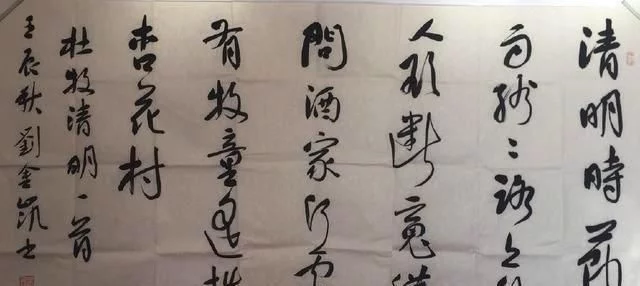 清明時節
雨紛々路上行
人欲斷魂借
問酒家何處
有牧童遥指
杏花村
杜牧清明一首
壬辰秋劉金凱书